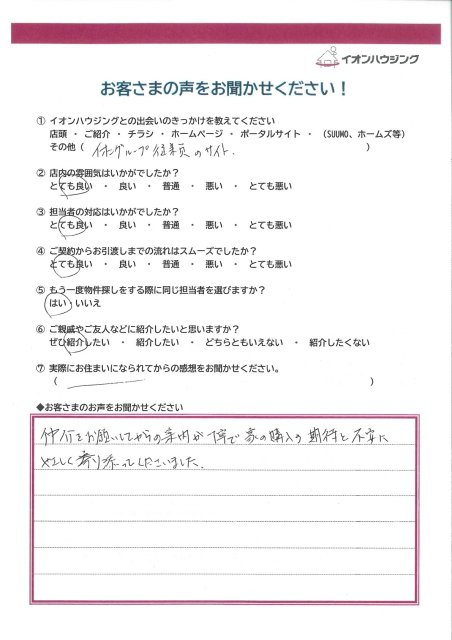 イオンハウジング
お客さまの声をお聞かせください！
① イオンハウジングとの出会いのきっかけを教えてください
店頭 ・ ご紹介 ・ チラシ ・ ホームページ ・ ポータルサイト ・ （SUUMO、ホームズ等）
その他（ イオングループ従業員のサイト. ）
② 店内の雰囲気はいかがでしたか？
とても良い ・ 良い ・ 普通 ・ 悪い ・ とても悪い
③ 担当者の対応はいかがでしたか？
とても良い ・ 良い ・ 普通 ・ 悪い ・ とても悪い
④ ご契約からお引渡しまでの流れはスムーズでしたか？
とても良い ・ 良い ・ 普通 ・ 悪い ・ とても悪い
⑤ もう一度物件探しをする際に同じ担当者を選びますか？
はい ・ いいえ
⑥ ご親戚やご友人などに紹介したいと思いますか？
ぜひ紹介したい ・ 紹介したい ・ どちらともいえない ・ 紹介したくない
⑦ 実際にお住まいになられてからの感想をお聞かせください。
（ ）
◆お客さまのお声をお聞かせください
仲介をお願いしてからの案内が丁寧で家の購入の期待と不安に
やさしく寄り添ってくださいました.